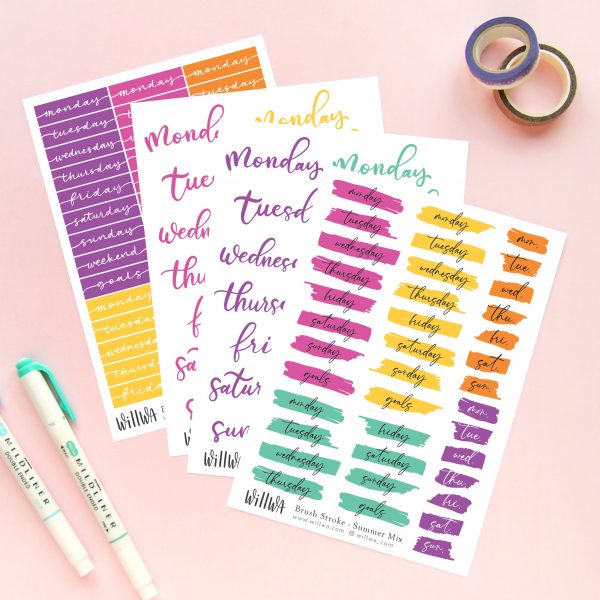 monday
tuesday
wednesday
thursday
friday
saturday
sunday
weekend
goals
monday
tuesday
wednesday
thursday
friday
monday
monday
willwa
Monday
monday
tuesday
wednesday
thursday
friday
saturday
sunday
goals
monday
tuesday
wednesday
thursday
friday
saturday
sunday
goals
mon.
tue.
wed.
thu.
fri.
sat.
sun.
monday
tuesday
wednesday
thursday
friday
saturday
sunday
goals
mon.
tue.
wed.
thu.
fri.
sat.
sun.
willwa
Brush Stroke - Summer Mix
www.willwa.com willwa_com
Monday
Monday
MILDLINER
DOUBLE ENDED
MILDLINER
DOUBLE ENDED